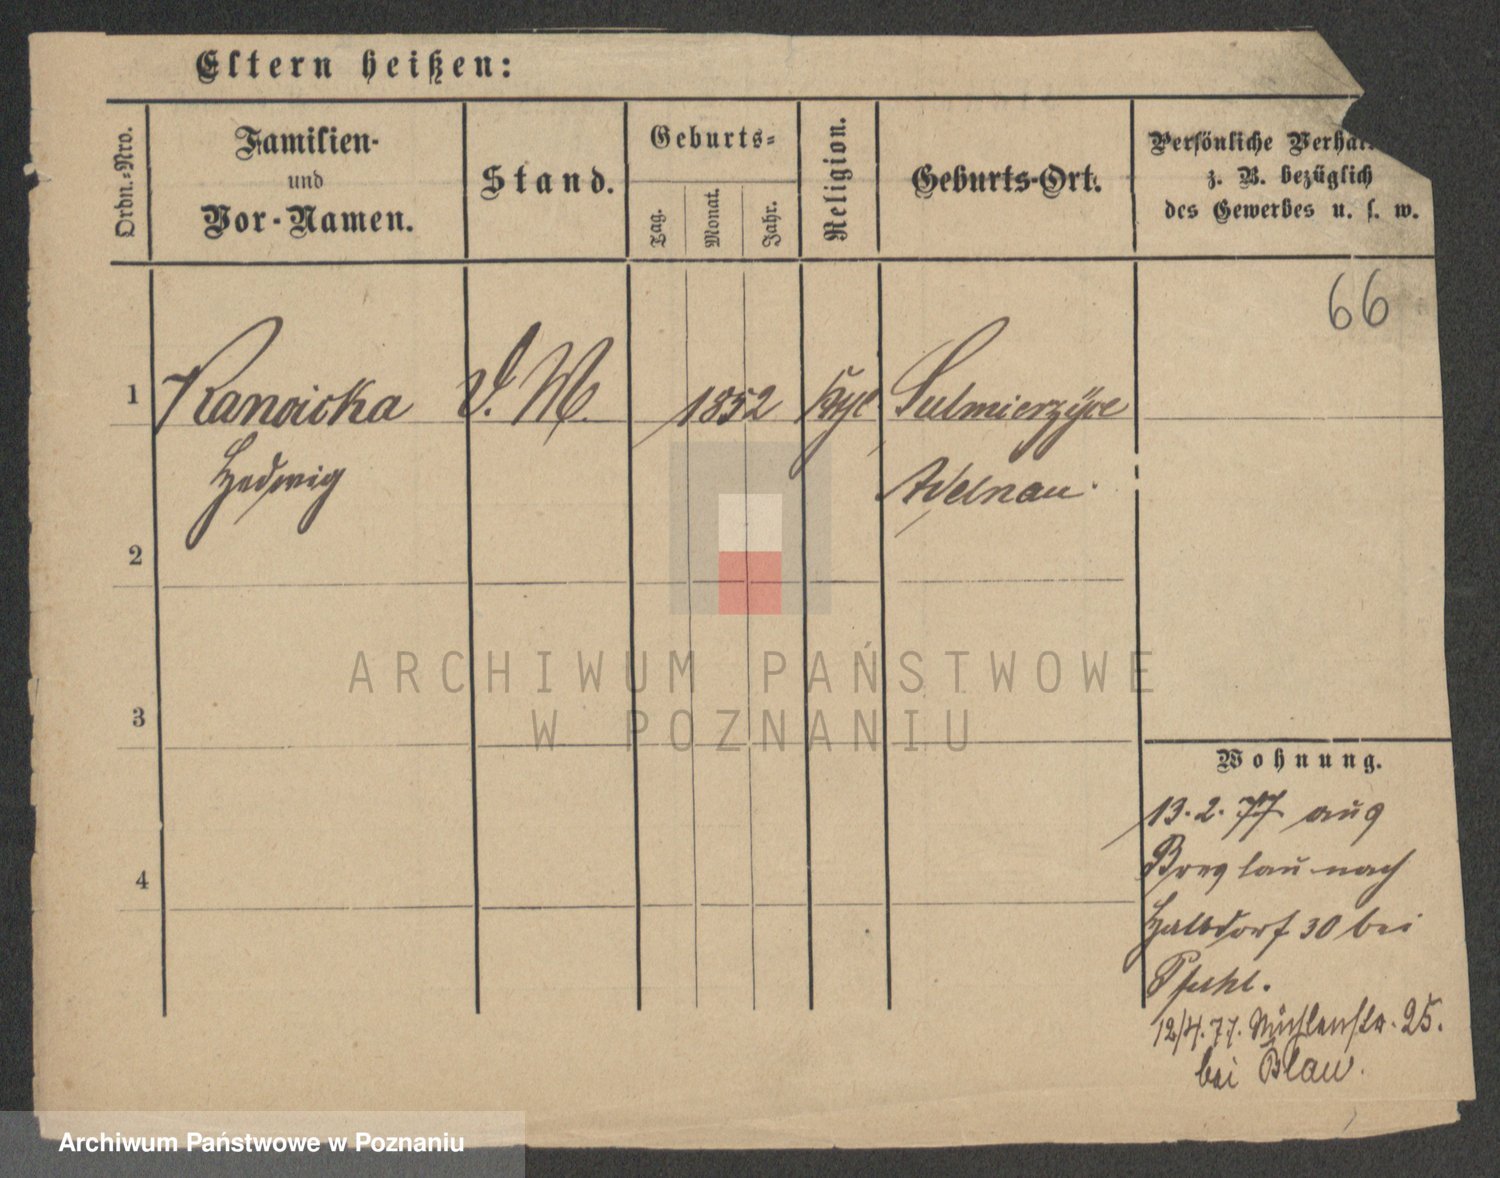 Eltern heißen:
Ordn.-Nro.
Familien-
und
Vor-Namen.
Stand.
Geburts-
Tag.
Monat.
Jahr.
Religion.
Geburts-Ort.
Persönliche
z. B. bezüglich
des Gewerbes u. s. w.
66
1
D. M.
1852
Adelnau.
Hedwig
2
3
4
Wohnung.
13. 2. 77 aus
Breslau nach
Halbdorf 30 bei
12/4. 77. Mühlenstr. 25.
bei Blau.
ARCHIWUM PAŃSTWOWE
W POZNANIU
Archiwum Państwowe w Poznaniu